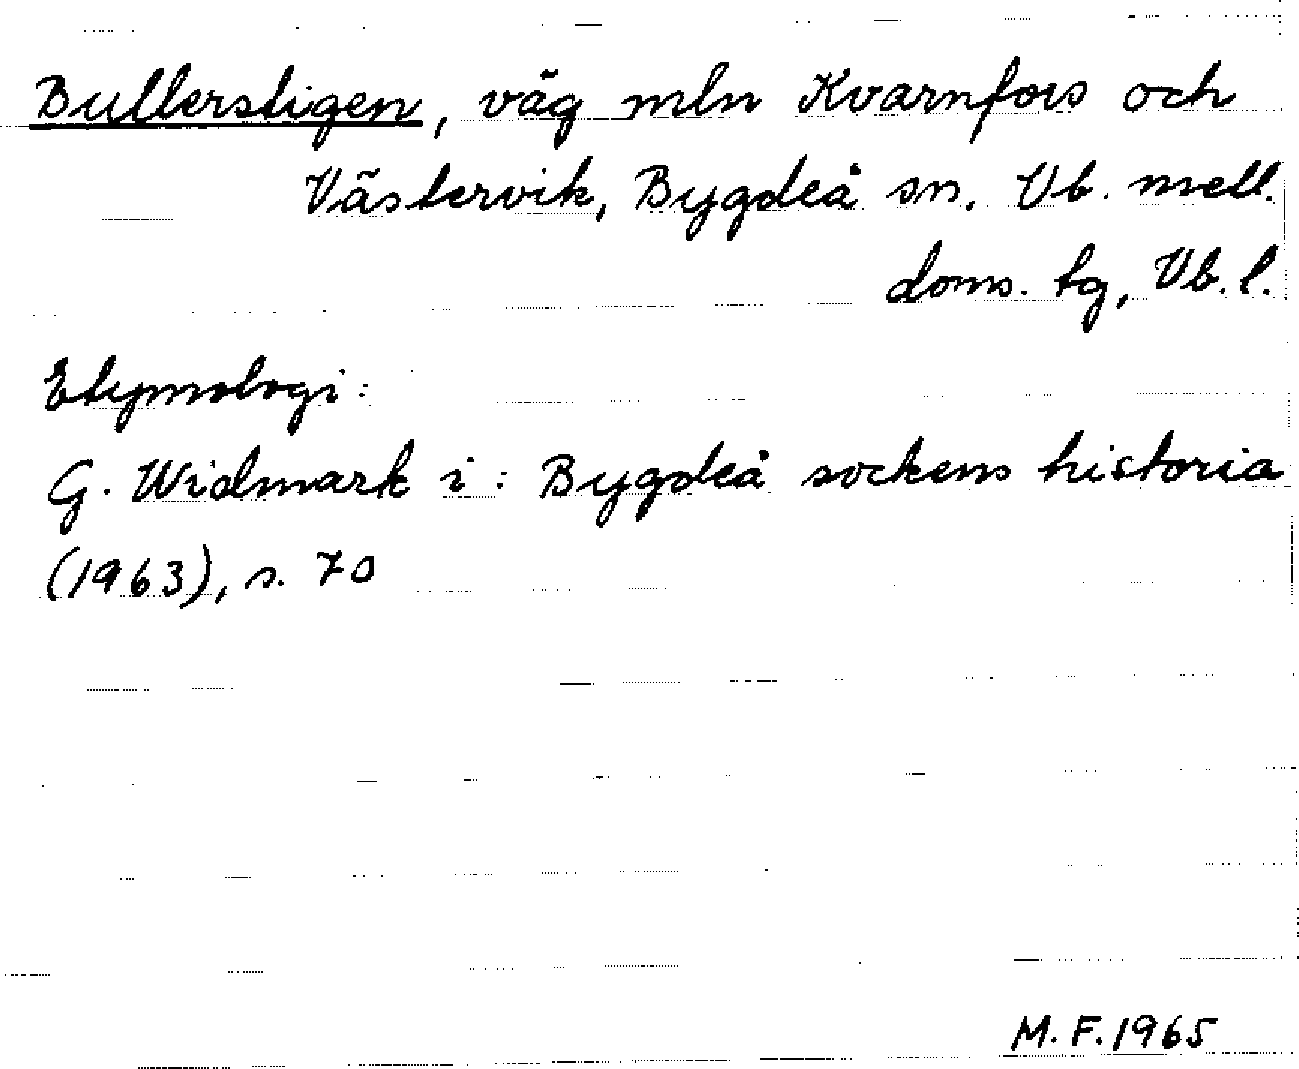 Bullerstigen, väg mln Kvarnfors och
Västervik, Bygdeå sn. Vb. mell.
doms. tg, Vb. l.
Etymologi:
G. Widmark i: Bygdeå sockens historia
(1963), s. 70
M. F. 1965